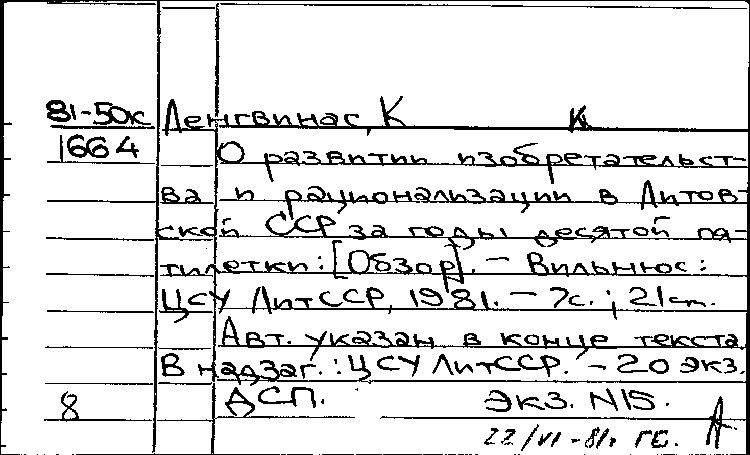 81-50к Ленгвинас, К К
1664 О развитии изобретательст-
ва и рационализации в Литов-
ской ССР за годы десятой пя-
тилетки: [Обзор]. - Вильнюс:
ЦСУ ЛитССР, 1981. - 7с.; 21см.
Авт. указан в конце текста.
В надзаг.: ЦСУ ЛитССР. - 20 экз.
8 ДСП. Экз. N15.
22/VI-81г.